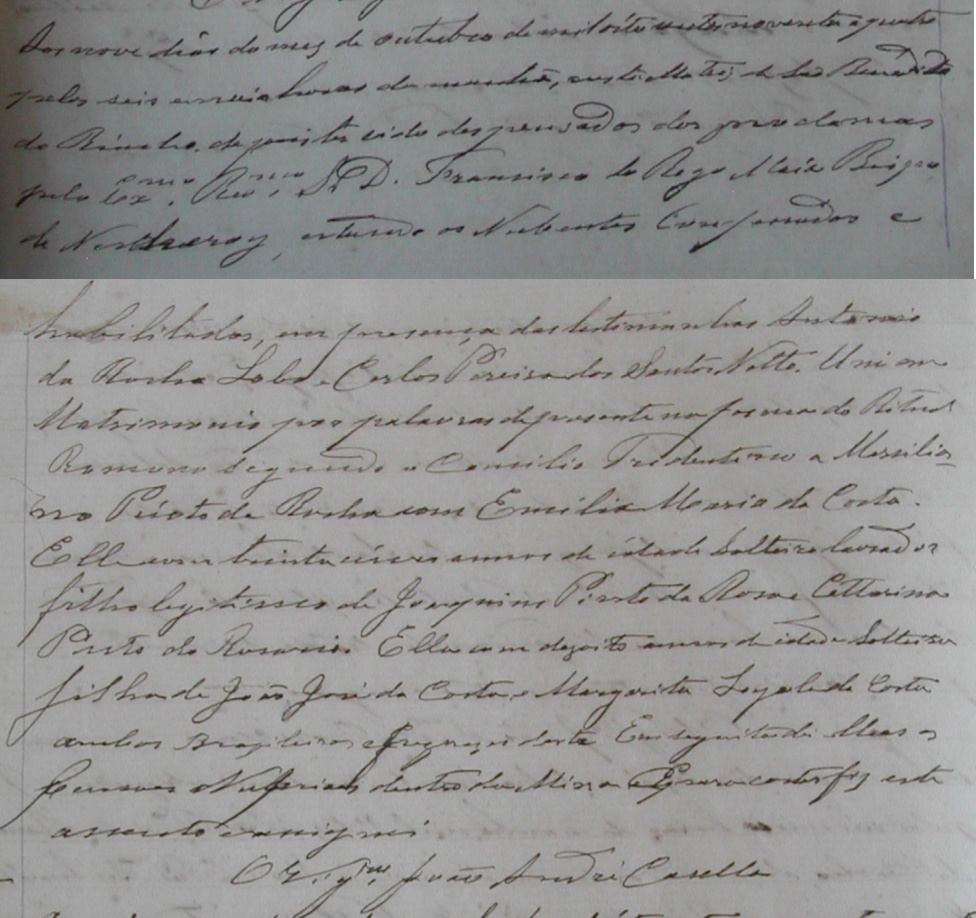 Aos nove dias do mez de outubro de mil oito centos noventa e quatro
pelas seis e meia horas da manhã, nesta Matriz de São Benedicto
do de pois de ter sido despensados dos proclamas
pelo Exmo. Revmo. Sr. D. Francisco do Rego Maia Bispo
de Nictheroy, estando os Nubentes Confessados e
habilitados, em presença das testimunhas Antonio
da Rocha Lobo e Carlos Pereira dos Santos Netto. Uni em
Matrimonio por palavras de presente na forma do Ritual
Romano segundo o Concilio Tridentino a Marcilia-
no Pinto da Rocha com Emilia Maria da Costa.
Elle com trinta cinco annos de idade solteiro lavrador
filho legitimo de Joaquim Pinto da Rosa e Catharina
Pinto do Rosario. Ella com desoito annos de idade Solteira
filha de João José da Costa e Margarita da Costa
ambos Brazileiros e freguezes desta Em seguita di lhes as
Bensoes Nupciais dentro da Missa E para constar fiz este
assento e assignei
O Vigro. João André Casella